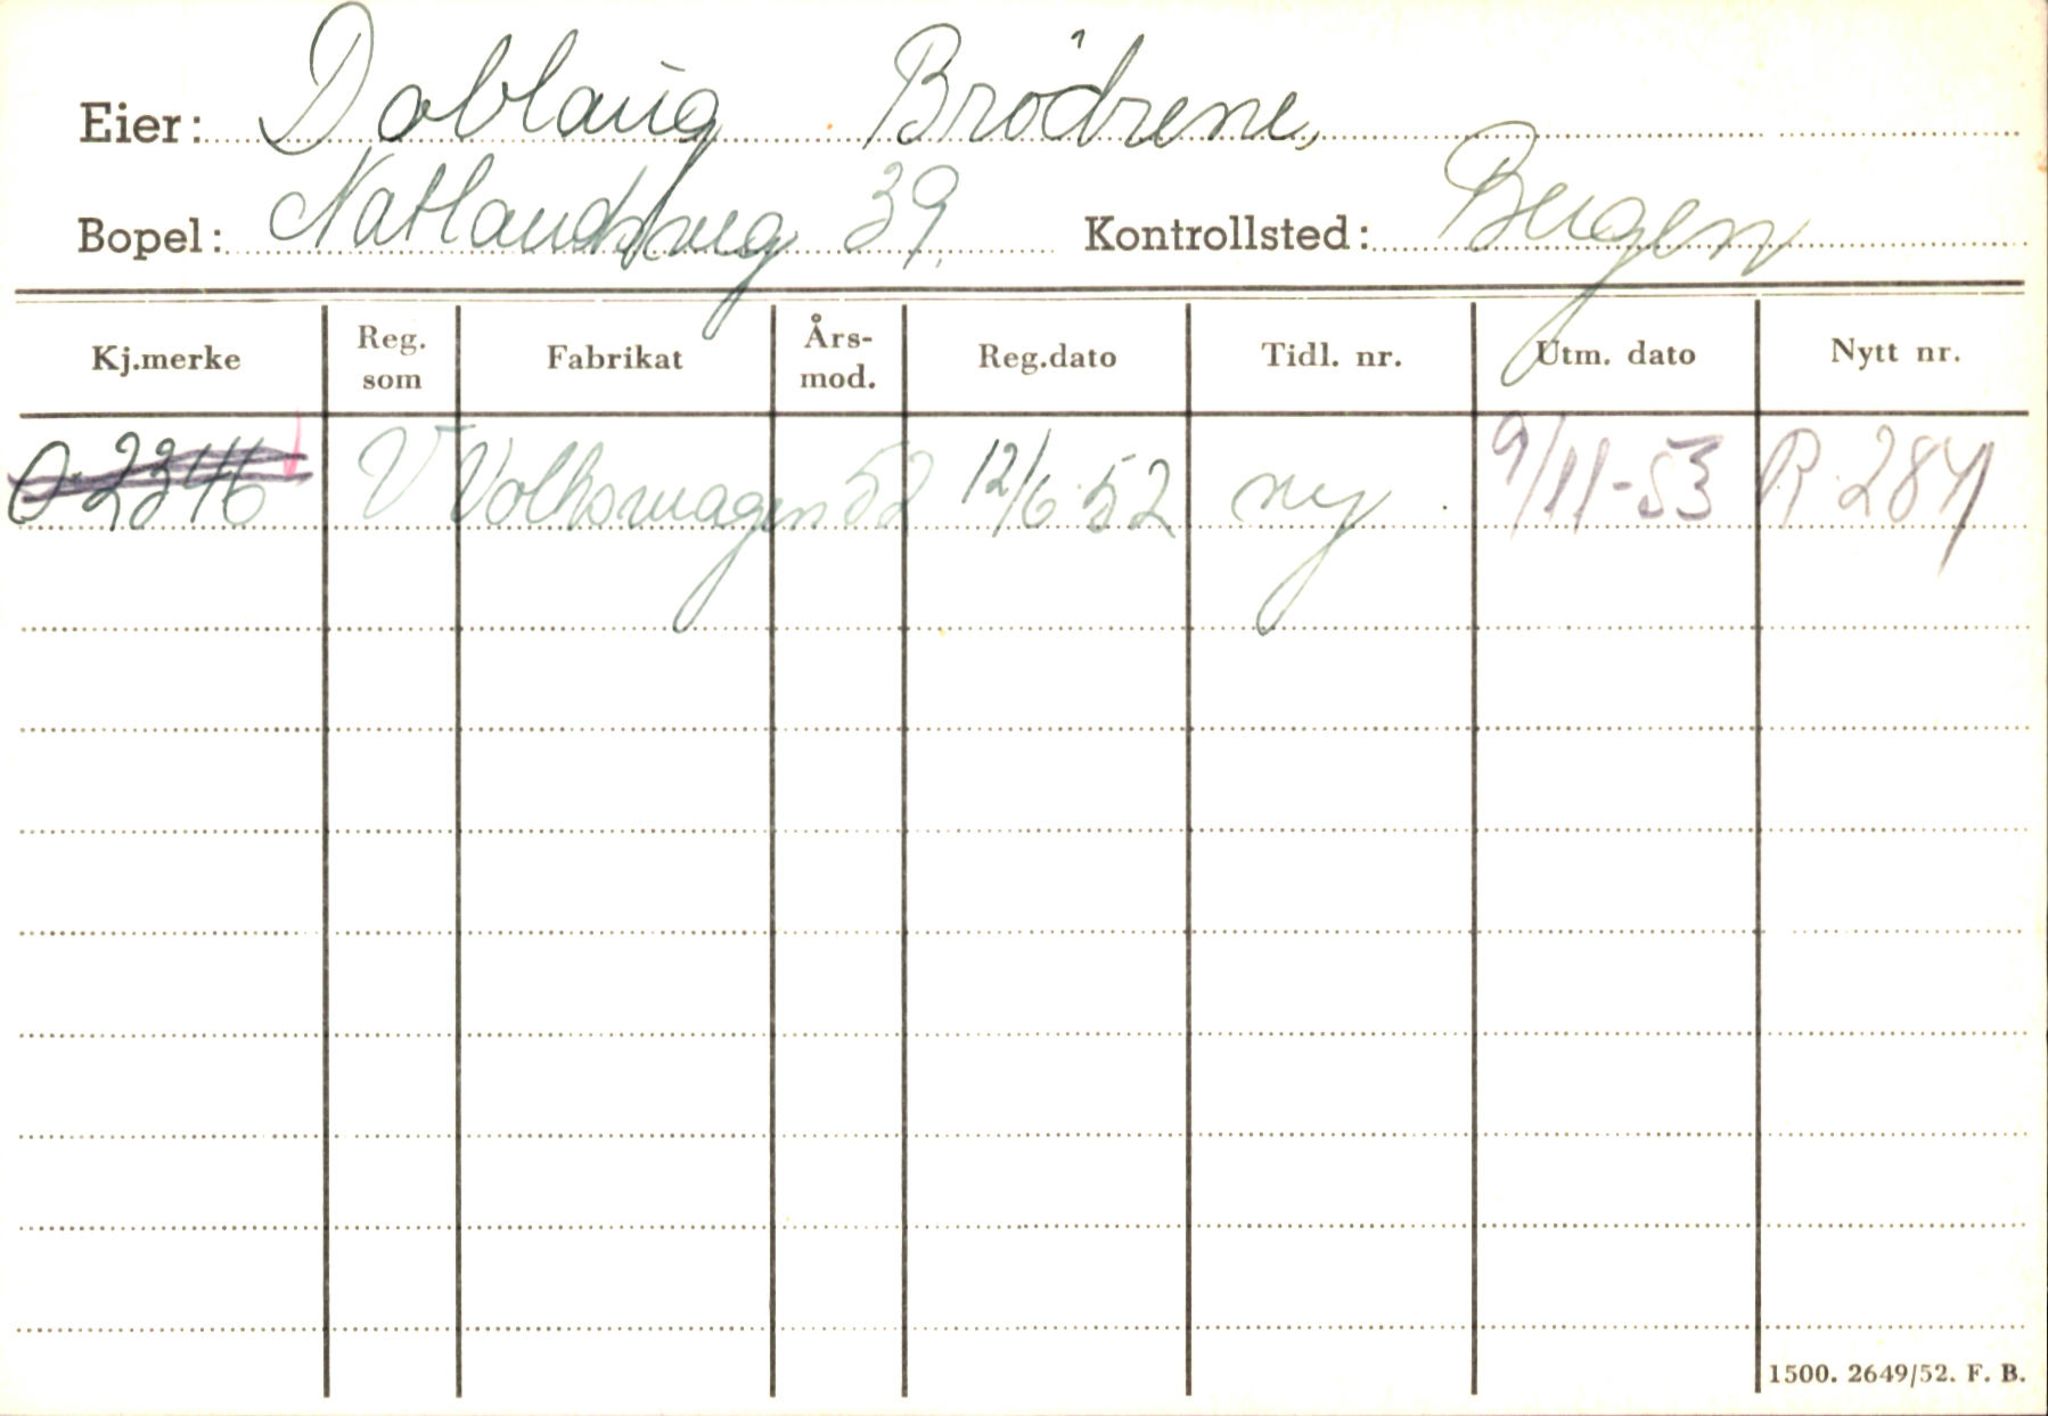 Eier: Doblaug Brödrene,
Bopel: Natlandsveg 39. Kontrollsted: Bergen
Kj.merke Reg. som Fabrikat Års-mod. Reg.dato Tidl. nr. Utm. dato Nytt nr.
O-2346 V Volkswagen 52 12/6-52 ny 9/11-53 R 2871
1500. 2649/52. F. B.